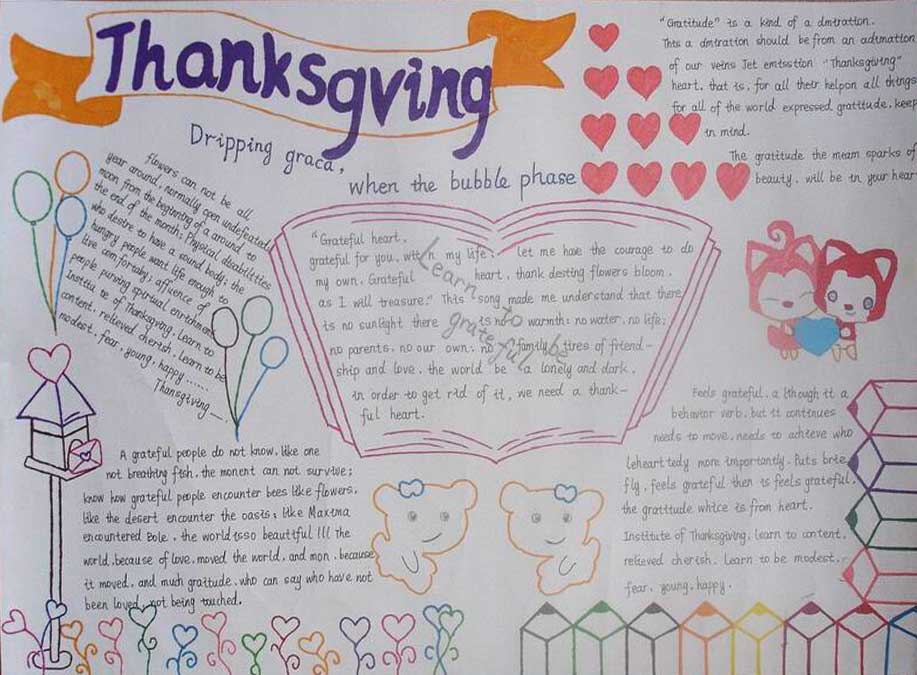 Thanksgving
Dripping graca,
when the bubble phase
"Gratitude" is a kind of a dmtration.
This a dmtration should be from an adtmation
of our veins Jet emtsstion "Thanksgiving"
heart, that is, for all their helpon all things
for all of the world expressed gratitude, keep
in mind.
The gratitude the meam sparks of
beauty, will be in your hear
flowers can not be all
year around, normally open undefeated
moon from the beginning of a around to
the end of the month; Physical disabilities
who desire to have a sound body; the
hungry people want life enough to
live comfortably, affluence of
people pursving spiritual enrichment
Institute of Thanksgiving, learn to
content, relieved cherish, learn to be
modest, fear, young, happy ......
Thansgiving—
"Grateful heart,
grateful for you, with in my life; let me have the courage to do
my own, Grateful heart, thank desting flowers bloom,
as I will treasure." This song made me understand that there
is no sunlight there is no warmth; no water, no life;
no parents, no our own; no family tires of friend-
ship and love, the world be a lonely and dark,
in order to get rid of it, we need a thank-
ful heart.
Learn
to
be
grateful
A grateful people do not know, like one
not breathing fish, the monent can not survive;
know how grateful people encounter bees like flowers,
like the desert encounter the oasis; like Maxima
encountered Bole, the world isso beautiful !!! The
world, because of love, moved the world, and mon, because
it moved, and much gratitude, who can say who have not
been loved, not being touched.
Feels grateful, a lthough it a
behavior verb, but it continues
needs to move, needs to achieve who
leheart tedy more importantly. Puts brie
fly, feels grateful then is feels grateful,
the gratitude whtce is from heart.
Institute of Thanksgiving, learn to content,
relieved cherish, Learn to be modest,
fear, young, happy.